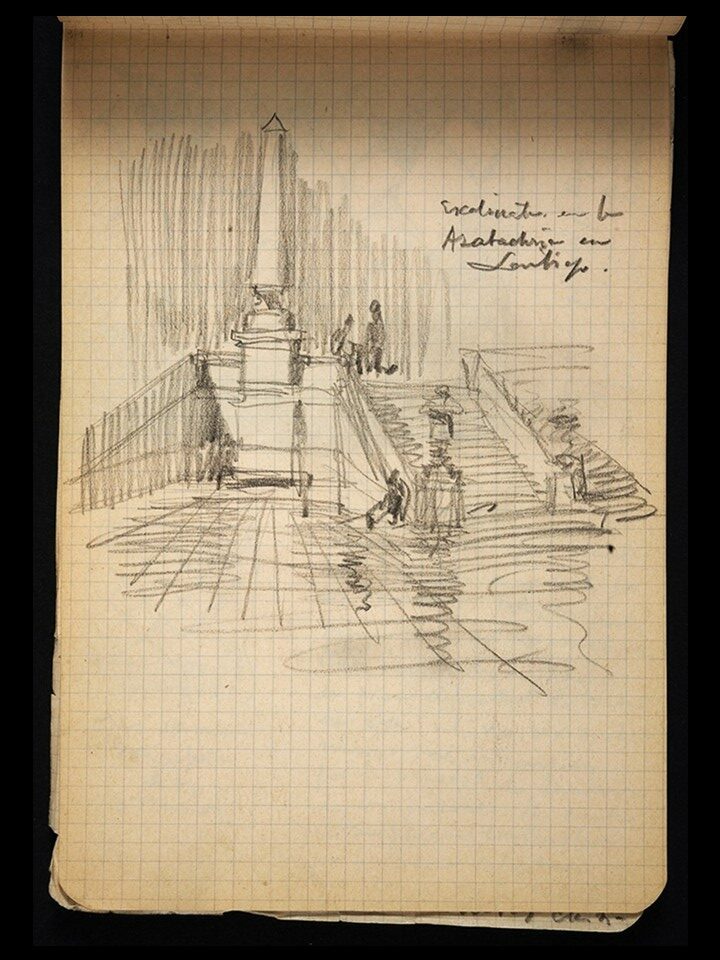 Escalinata en la
Azabachería en
Santiago.